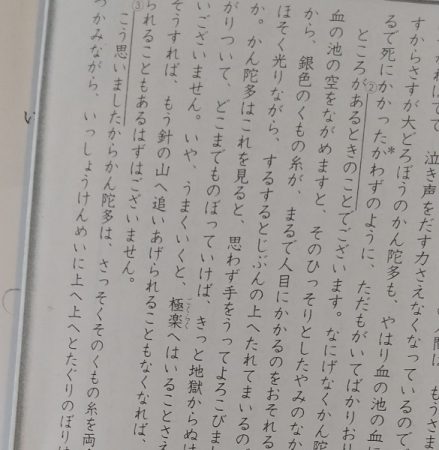 泣き声をだす力さえなくなっているので
すからさすが大どろぼうのかん陀多も、やはり血の池の血に
るで死にかかった*かわずのように、ただもがいてばかりおり
②
ところがあるときのことでございます。なにげなくかん陀
血の池の空をながめますと、そのひっそりとしたやみのなか
から、銀色のくもの糸が、まるで人目にかかるのをおそれる
ほそく光りながら、するするとじぶんの上へたれてまいるので
か。かん陀多はこれを見ると、思わず手をうってよろこびまし
がりついて、どこまでものぼっていけば、きっと地獄からぬけ
いございません。いや、うまくいくと、極楽へはいることさえ
ごくらく
そうすれば、もう針の山へ追いあげられることもなくなれば、
られることもあるはずはございません。
③
こう思いましたからかん陀多は、さっそくそのくもの糸を両
つかみながら、いっしょうけんめいに上へ上へとたぐりのぼりは